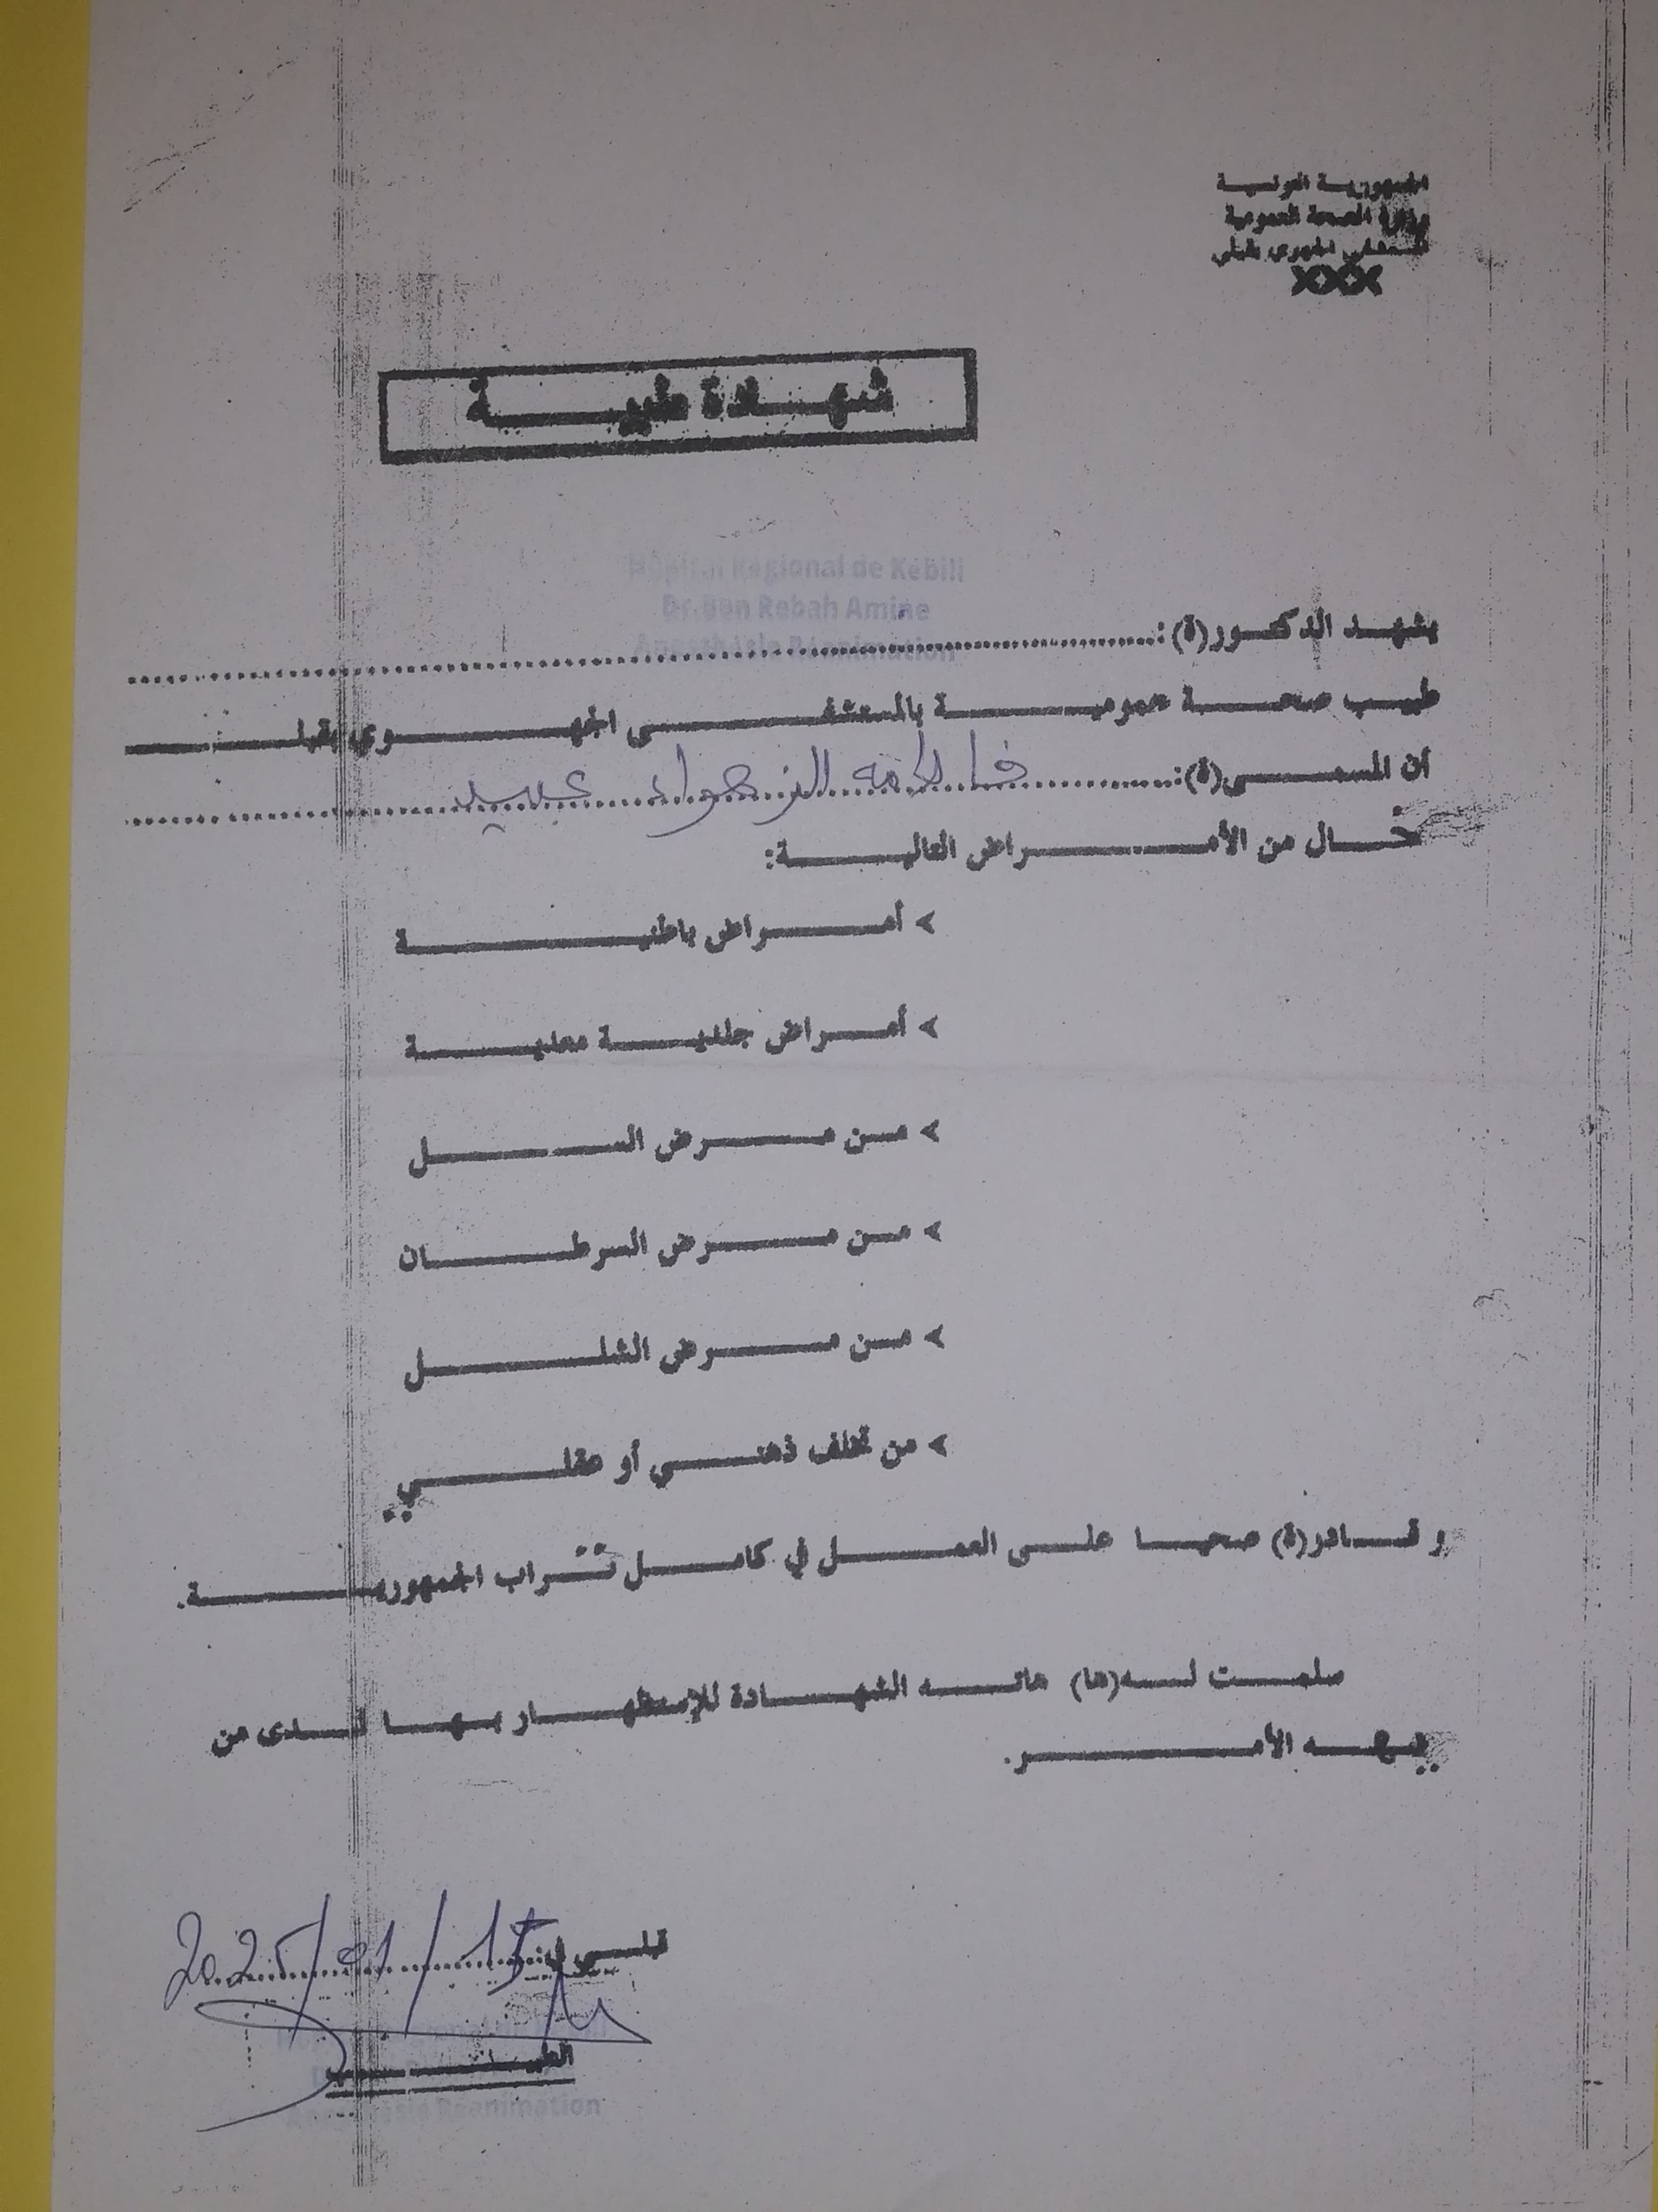 الجمهورية التونسية
وزارة الصحة العمومية
المستشفى الجهوي بقبلي
XXX
شهادة طبية
Hôpital Régional de Kébili
Dr. Ben Rebah Amine
Anesthésie Réanimation
يشهد الدكتور(ة):
طبيب صحة عمومية بالمستشفى الجهوي بقبلي
أن المسمى(ة): فاطمة الزهراء عبيد
خال من الأمراض التالية:
> أمراض باطنية
> أمراض جلدية معدية
> من مرض السل
> من مرض السرطان
> من مرض الشلل
> من تخلف ذهني أو عقلي
و قادر(ة) صحيا على العمل في كامل تراب الجمهورية.
سلمت له(ها) هاته الشهادة للإستظهار بها لدى من
يهمه الأمر.
قبلي في: 15/01/2025
الطبيب
Anesthésie Réanimation